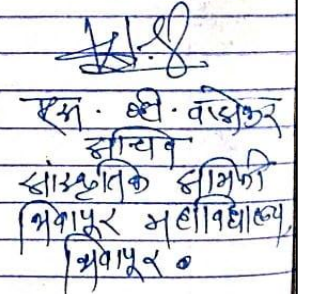 एम. व्ही. वाकोडकर
सचिव
सांस्कृतिक समिती
भिवापूर महाविद्यालय,
भिवापूर.